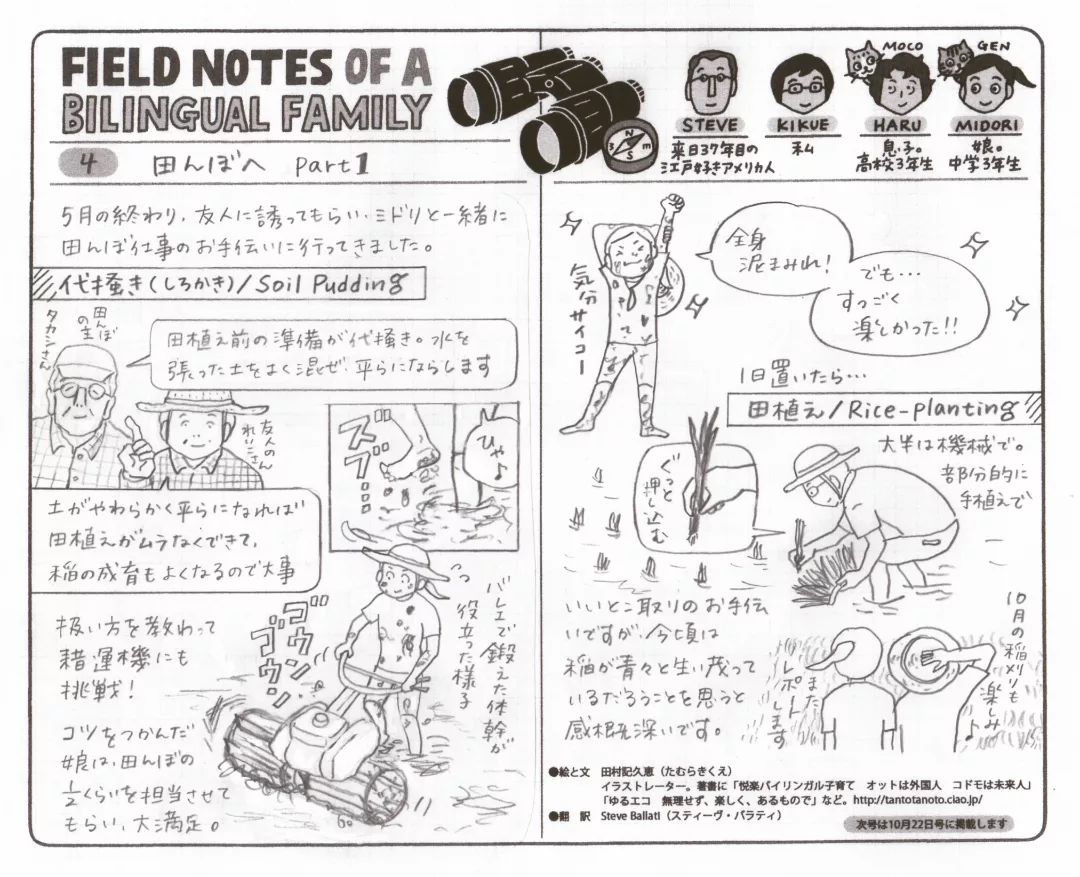 FIELD NOTES OF A
BILINGUAL FAMILY
MOCO
GEN
STEVE
来日37年目の
江戸好きアメリカ人
KIKUE
私
HARU
息子。
高校3年生
MIDORI
娘。
中学3年生
N
S
4 田んぼへ Part1
5月の終わり、友人に誘ってもらい、ミドリと一緒に
田んぼ仕事のお手伝いに行ってきました。
代掻き(しろかき)/Soil Pudding
田んぼ
の主
タカシさん
田植え前の準備が代掻き。水を
張った土をよく混ぜ、平らにならします
友人のん
れいこさん
土がやわらかく平らになれば
田植えがムラなくできて、
稲の成育もよくなるので大事
ズブ…
ひゃ♪
扱い方を教わって
耕運機にも
挑戦!
ゴウン
ゴウン
バレエで鍛えた体幹が
役立った様子
コツをつかんだ
娘は、田んぼの
½くらいを担当させて
もらい、大満足。
気分サイコー
全身
泥まみれ!
でも…
すっごく
楽しかった!!
1日置いたら…
田植え/Rice-planting
大半は機械で。
部分的に
手植えで
ぐっと
押し込む
いいとこ取りのお手伝
いですが、今頃は
稲が青々と生い茂って
いるだろうことを思うと
感慨深いです。
10月の稲メリリも
楽しみ
また
レポートします
●絵と文 田村記久恵(たむらきくえ)
イラストレーター。著書に「悦楽バイリンガル子育て オットは外国人 コドモは未来人」
「ゆるエコ 無理せず、楽しく、あるもので」など。http://tantotanoto.ciao.jp/
●翻 訳 Steve Ballati(スティーヴ・バラティ)
次号は10月22日号に掲載します